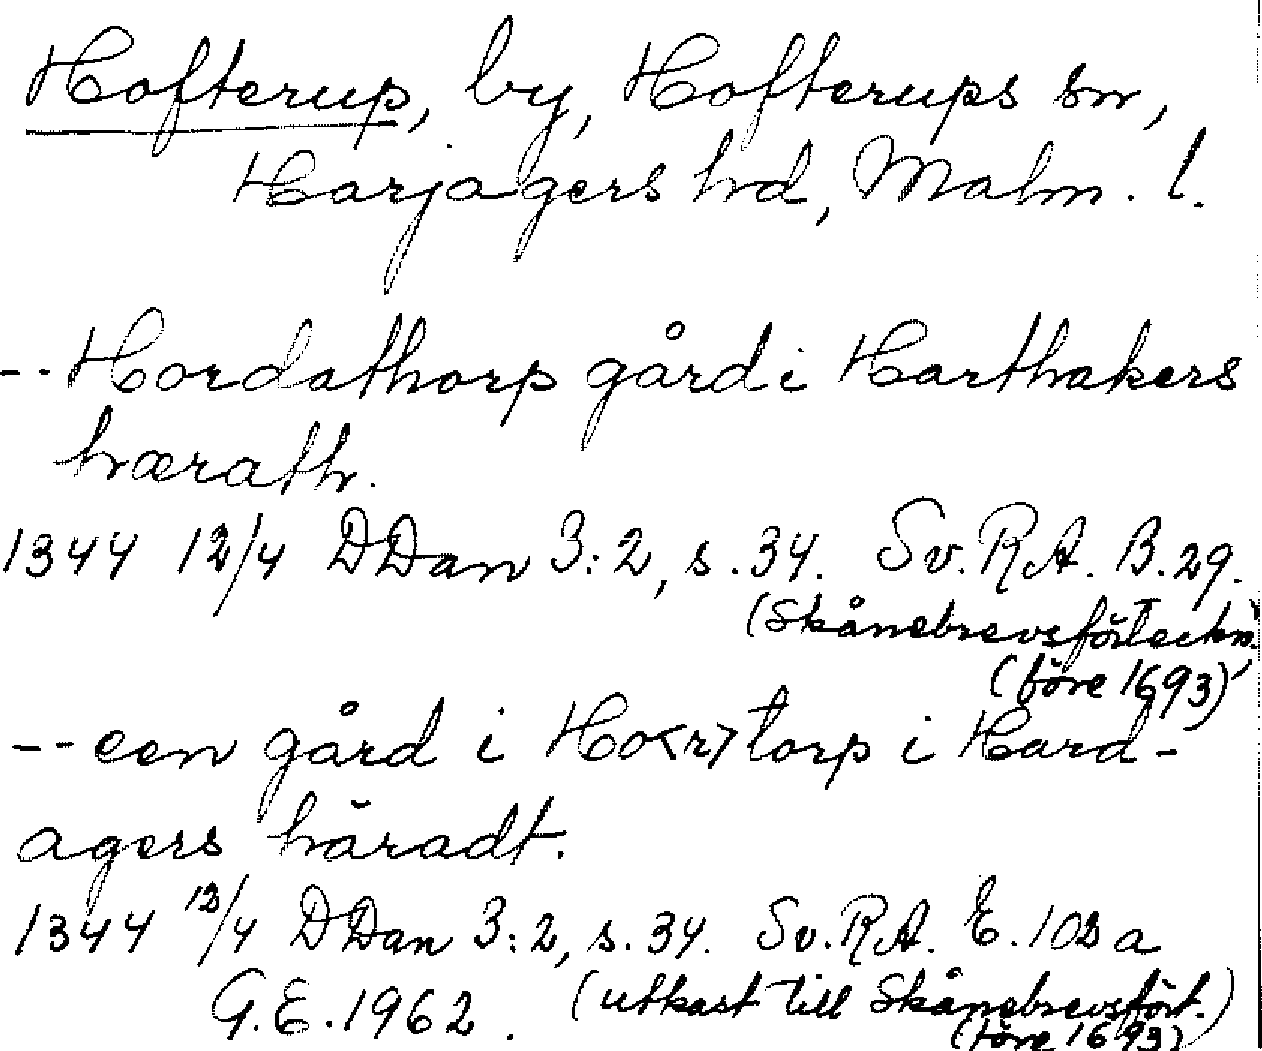 Hofterup, by, Hofterups sn,
Harjagers hd, Malm. l.
-- Hordathorp gård i Harthakers
hærath.
1344 12/4 DDan 3:2, s. 34. Sv. RA. B. 29.
(Skånebrevsförteckn.
(före 1693)
-- een gård i Ho<r>torp i Hard-
agers häradt.
1344 12/4 DDan 3:2, s. 34. Sv. RA. E. 103 a
G.E. 1962. (utkast till Skånebrevsfört.)
(före 1693)